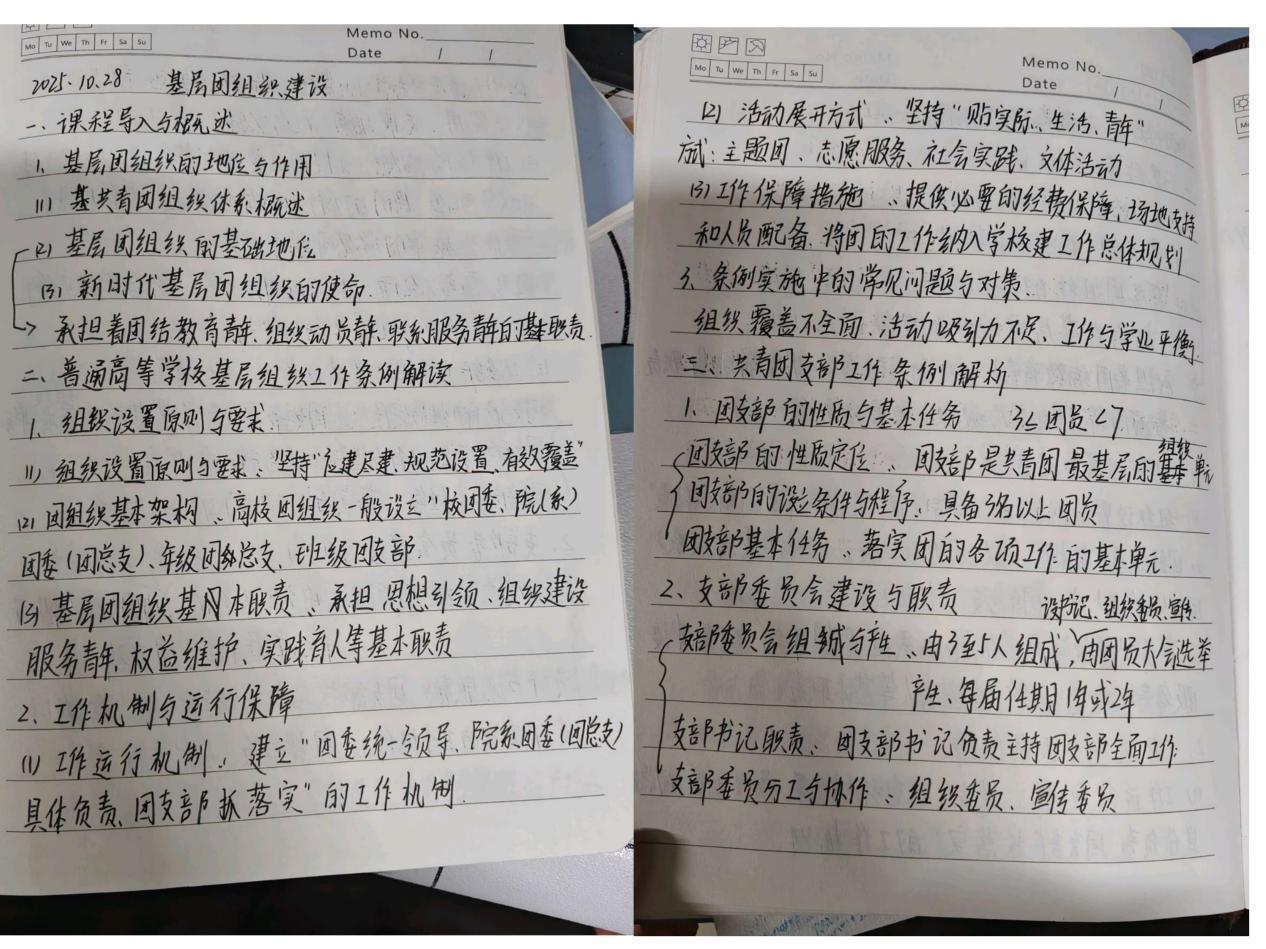 Mo Tu We Th Fr Sa Su
Memo No.
Date / /
2025.10.28 基层团组织建设
一、课程导入与概述
1. 基层团组织的地位与作用
(1) 基共青团组织体系概述
(2) 基层团组织的基础地位
(3) 新时代基层团组织的使命.
承担着团结教育青年、组织动员青年、联系服务青年的基本职责.
二、普通高等学校基层组织工作条例解读
1. 组织设置原则与要求.
(1) 组织设置原则与要求、"坚持"应建尽建、规范设置、有效覆盖"
(2) 团组织基本架构、高校团组织一般设立"校团委、院(系)
团委(团总支)、年级团总支、班级团支部.
(3) 基层团组织基本职责、承担思想引领、组织建设
服务青年、权益维护、实践育人等基本职责
2、工作机制与运行保障
(1) 工作运行机制、建立"团委统一领导、院系团委(团总支)
具体负责、团支部抓落实"的工作机制.
Mo Tu We Th Fr Sa Su
Memo No.
Date / /
(2) 活动展开方式、坚持"贴实际、生活、青年"
方式:主题团、志愿服务、社会实践、文体活动
(3) 工作保障措施、提供必要的经费保障、场地支持
和人员配备、将团的工作纳入学校建工作总体规划
3、条例实施中的常见问题与对策.
组织覆盖不全面、活动吸引力不足、工作与学业平衡
三、共青团支部工作条例解析
1. 团支部的性质与基本任务 3≤团员<7
团支部的性质定位、团支部是共青团最基层的组织基本单元
团支部的设立条件与程序、具备3名以上团员
团支部基本任务、落实团的各项工作的基本单元.
2、支部委员会建设与职责
设书记、组织委员、宣传.
支部委员会组成与产生、由3至5人组成,由团员大会选举
产生、每届任期1年或2年
支部书记职责、团支部书记负责主持团支部全面工作
支部委员分工与协作、组织委员、宣传委员